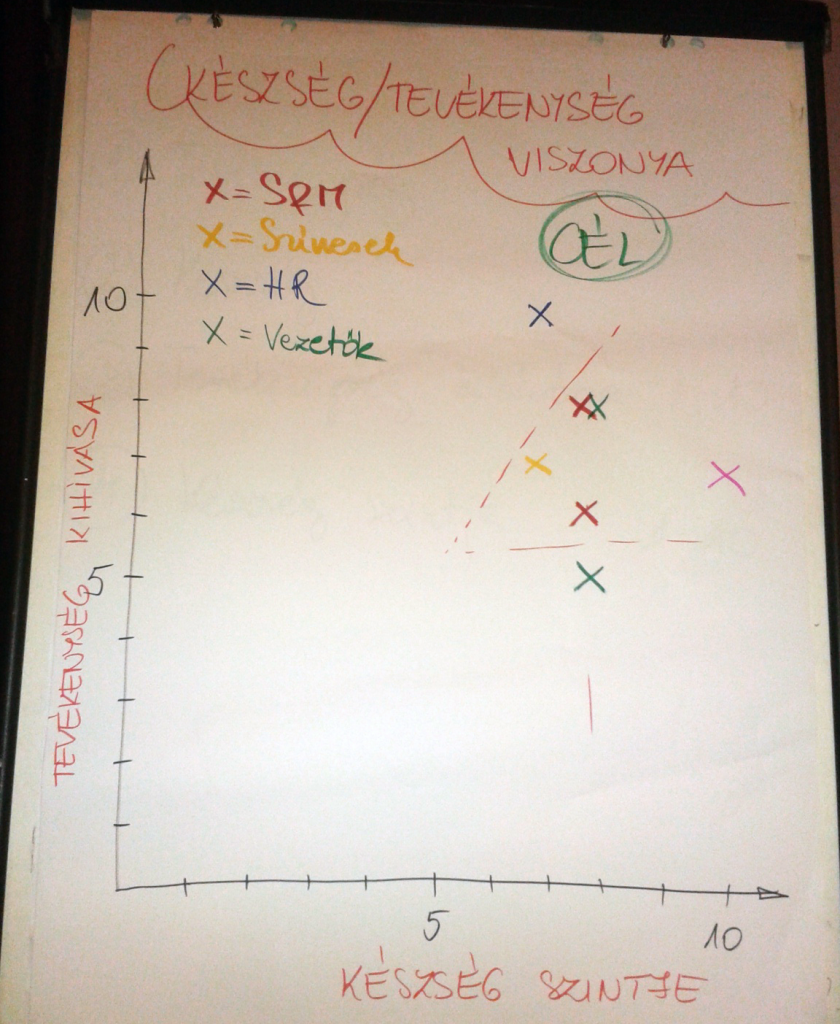 KÉSZSÉG/TEVÉKENYSÉG
VISZONYA
X = SRM
X = Színesek
X = HR
X = Vezetők
CÉL
10
5
TEVÉKENYSÉG KIHÍVÁSA
5
10
KÉSZSÉG SZINTJE